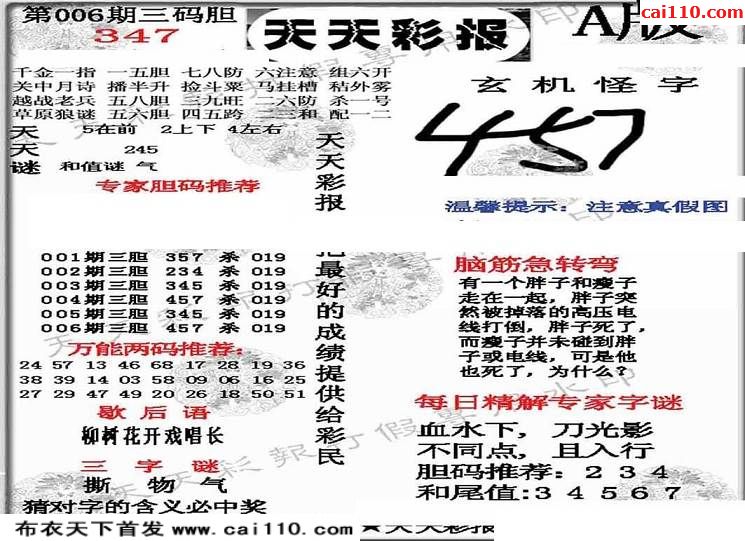 第006期三码胆
347
天天彩报
A版
cai110.com
千金一指 一五胆 七八防 六注意 组六开
关中月诗 播半升 捡斗粟 马挂槽 秸外雾
越战老兵 五八胆 三九旺 二六防 杀一号
草原狼谜 五六胆 四五跨 二三和 配一二
天 5在前 2上下 4左右
天 245
谜 和值谜 气
专家胆码推荐
001期三胆 357 杀 019
002期三胆 234 杀 019
003期三胆 345 杀 019
004期三胆 457 杀 019
005期三胆 345 杀 019
006期三胆 457 杀 019
万能两码推荐:
24 57 13 46 68 17 28 19 36
38 39 14 03 58 09 06 16 25
27 29 47 49 20 26 18 50 51
歇后语
柳树花开戏唱长
三字谜
撕 物 气
猜对字的含义必中奖
天天彩报
把最好的成绩提供给彩民
玄机怪字
457
温馨提示：注意真假图
脑筋急转弯
有一个胖子和瘦子
走在一起，胖子突
然被掉落的高压电
线打倒，胖子死了，
而瘦子并未碰到胖
子或电线，可是他
也死了，为什么？
每日精解专家字谜
血水下，刀光影
不同点，且入行
胆码推荐：234
和尾值:34567
布衣天下首发 www.cai110.com
天天彩报